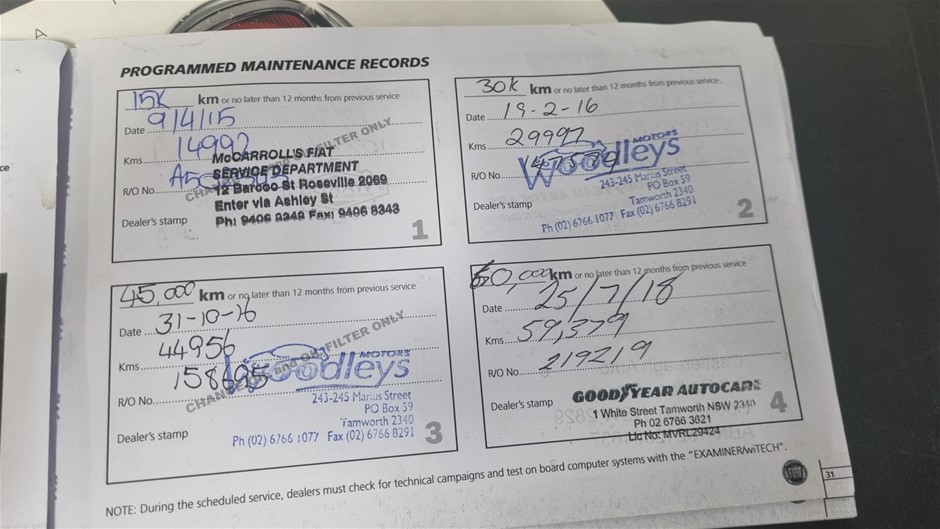 PROGRAMMED MAINTENANCE RECORDS
15K km or no later than 12 months from previous service
Date 9/4/15
Kms 14992
R/O No.
CHANGE OIL and OIL FILTER ONLY
McCARROLL'S FIAT
SERVICE DEPARTMENT
12 Barcoo St Roseville 2069
Enter via Ashley St
Dealer's stamp
Ph: 9406 Fax: 9406 8343
1
30K km or no later than 12 months from previous service.
Date 19-2-16
Kms 29997
R/O No.
Woodleys MOTORS
243-245 Marius Street
PO Box 59
Tamworth 2340
Dealer's stamp
Ph (02) 6766 1077 Fax (02) 6766 8291
2
45,000 km or no later than 12 months from previous service
Date 31-10-16
Kms 44956
R/O No. 158695
CHANGE OIL and OIL FILTER ONLY
Woodleys MOTORS
243-245 Marius Street
PO Box 59
Tamworth 2340
Dealer's stamp
Ph (02) 6766 1077 Fax (02) 6766 8291
3
60,000 km or no later than 12 months from previous service
Date 25/7/18
Kms 59,379
R/O No. 219219
Dealer's stamp
GOODYEAR AUTOCARE
1 White Street Tamworth NSW 2340
Ph 02 6766 3621
Lic No: MVRL29424
4
NOTE: During the scheduled service, dealers must check for technical campaigns and test on board computer systems with the "EXAMINER/wiTECH".
FIAT
31